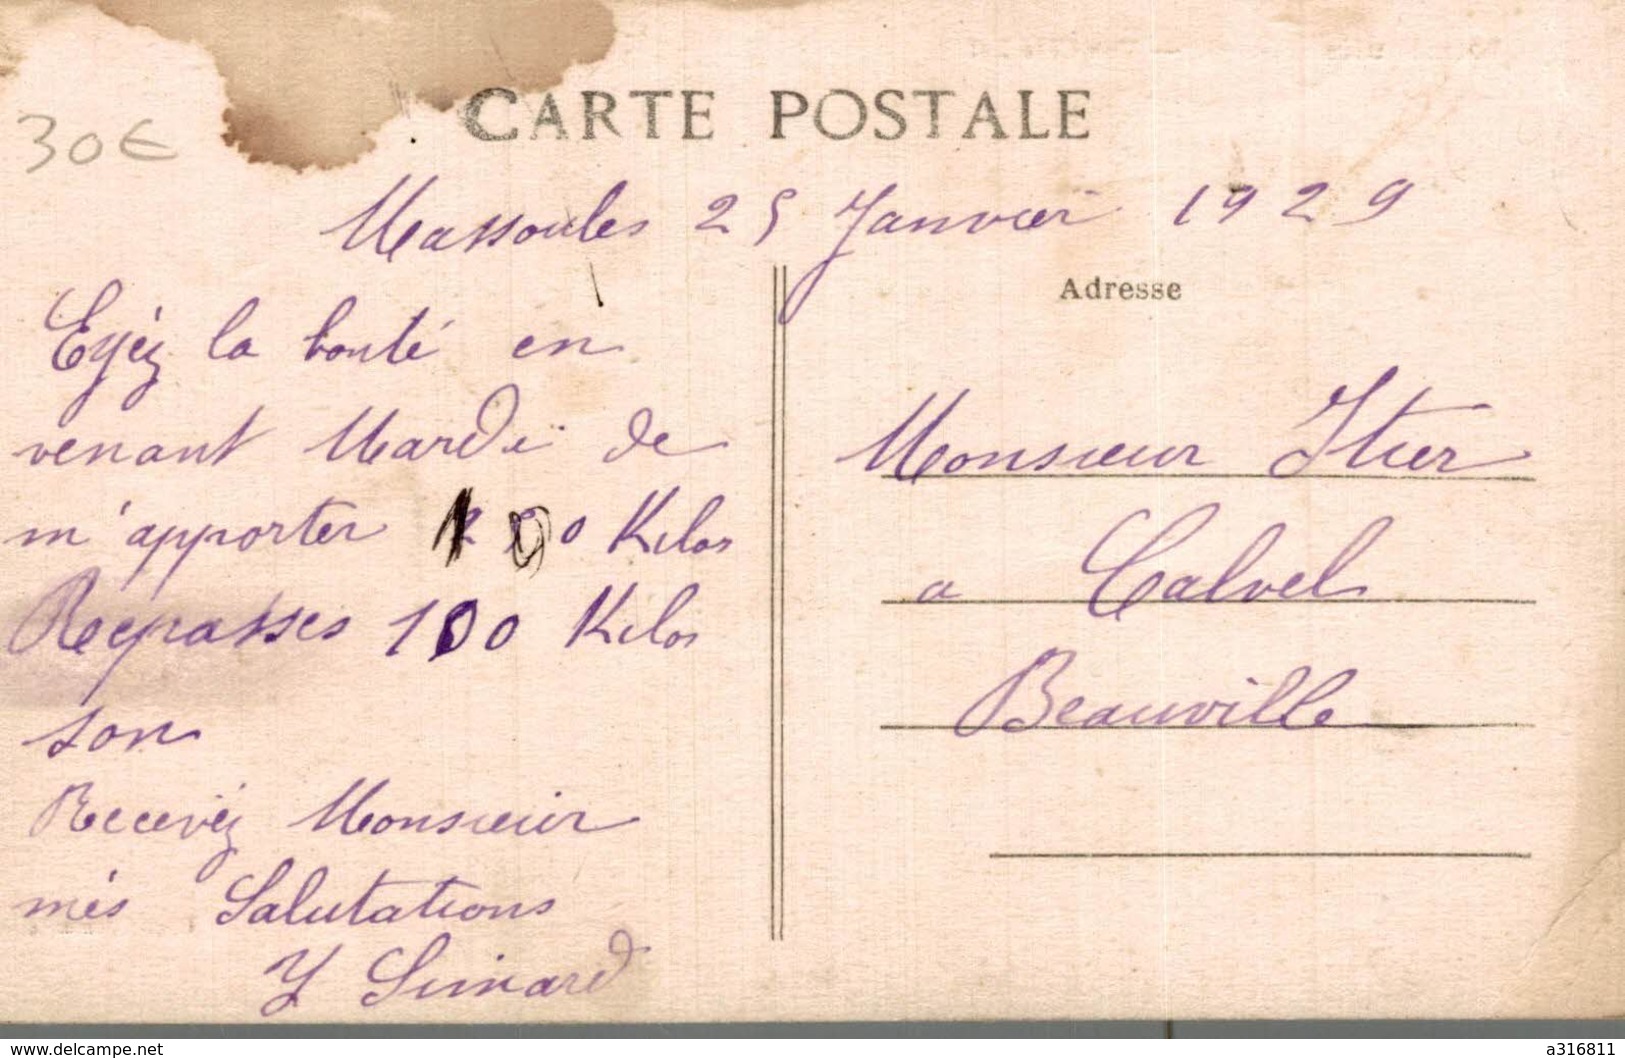 30€
CARTE POSTALE
Massoules 25 Janvier 1929
Eyéz la bonté en
venant Mardi de
m'apporter 100 Kilos
Repasses 100 Kilos
son
Recevéz Monsieur
més Salutations
Y Simard
Adresse
Monsieur Itier
a Calvel
Beauville
www.delcampe.net
a316811